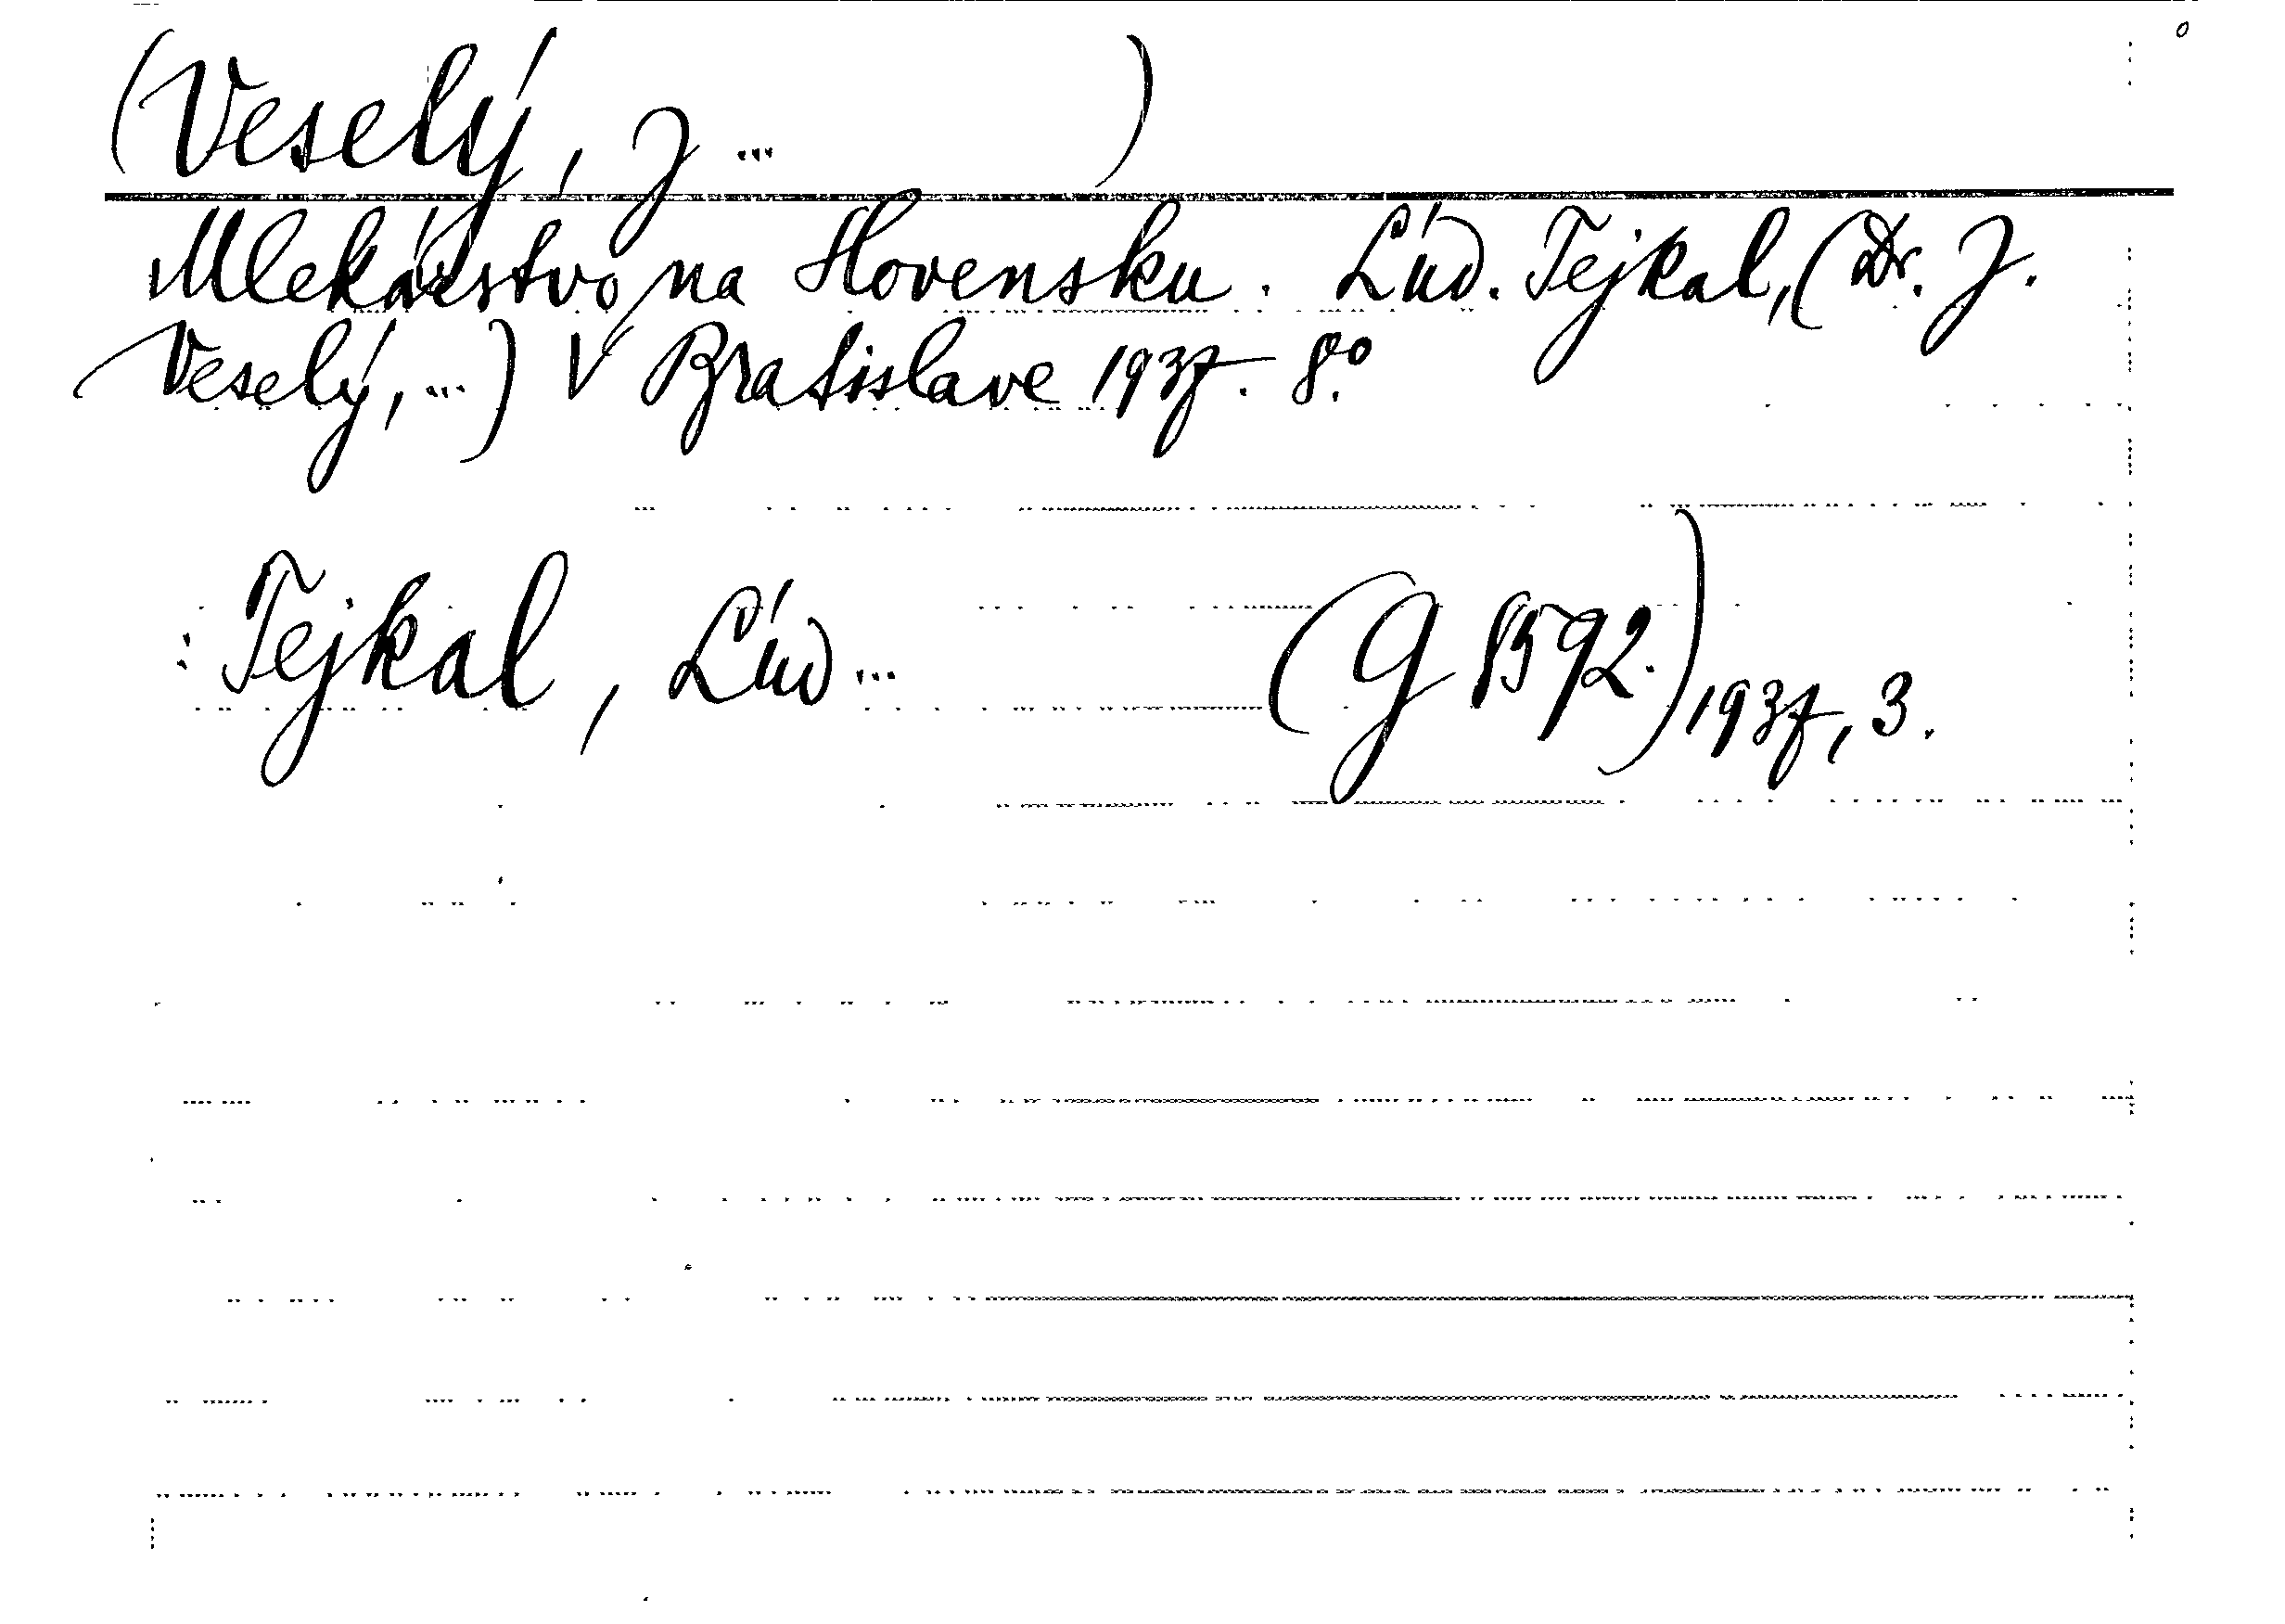 (Veselý, J ... )
Mlekárstvo na Slovensku. Lúd. Tejkal, (Dr. J.
Veselý, ...) V Bratislave 1937. 8.º
: Tejkal, Lúd... (G 8592.) 1937, 3.